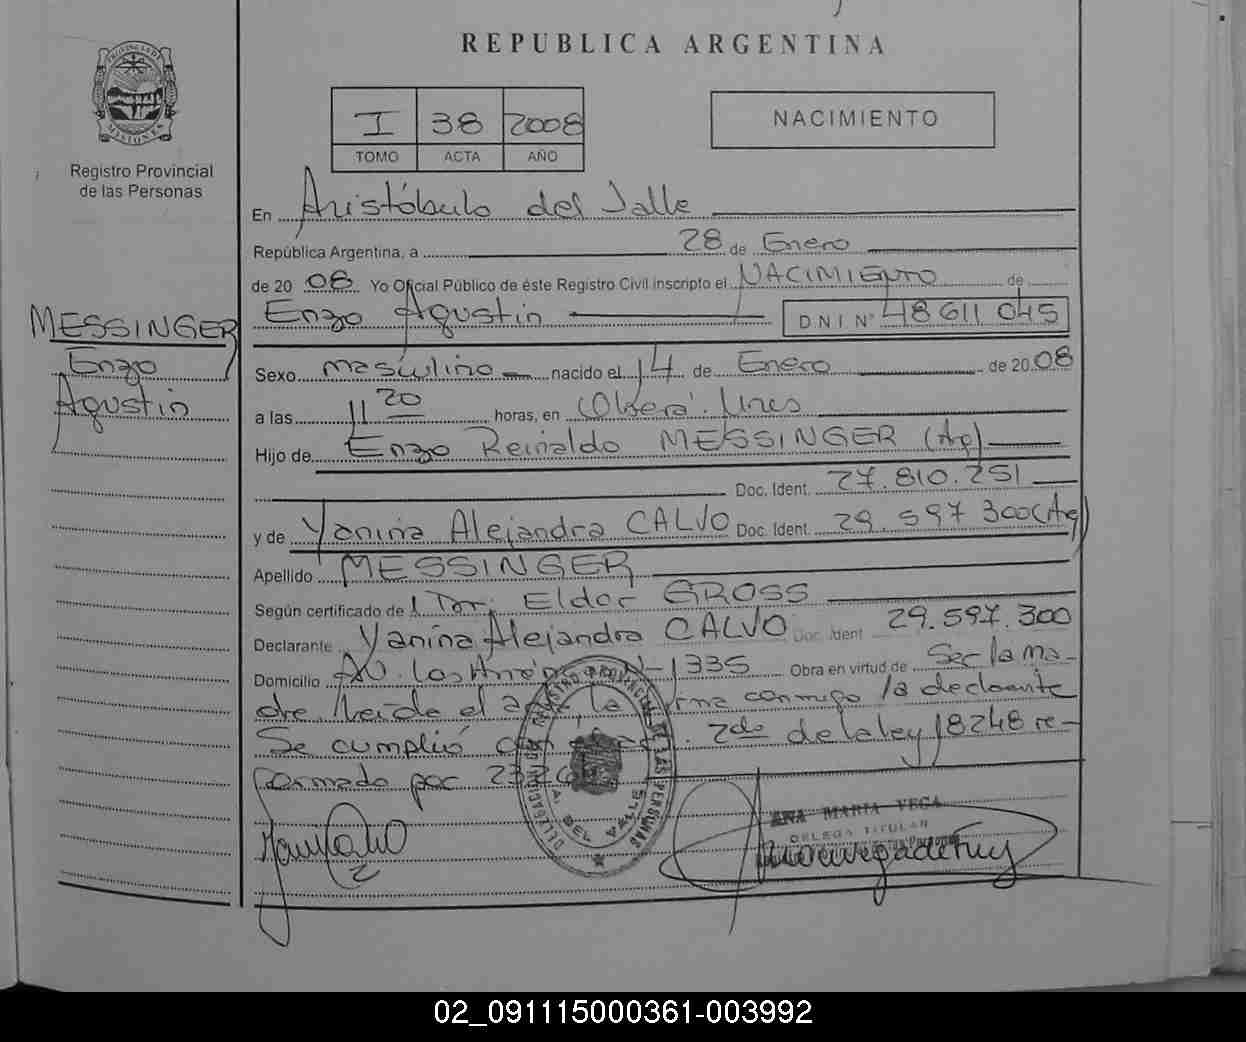 REPUBLICA ARGENTINA
PROVINCIA DE MISIONES
Registro Provincial
de las Personas
I 38 2008
TOMO ACTA AÑO
NACIMIENTO
En Aristóbulo del Valle
República Argentina, a 28 de Enero
de 20 08 Yo Oficial Público de éste Registro Civil inscripto el NACIMIENTO de
Enzo Agustin DNI Nº 48611045
MESSINGER
Enzo
Agustin
Sexo masculino nacido el 14 de Enero de 20 08
a las 11 20 horas, en Oberá
Hijo de Enzo Reinaldo MESSINGER (Arg)
Doc. Ident. 27.810.251
y de Yanina Alejandra CALVO Doc. Ident. 29.597.300 (Arg)
Apellido MESSINGER
Según certificado de Eldor GROSS
Declarante Yanina Alejandra CALVO Doc. Ident 29.597.300
Domicilio AV. Las N-1335 Obra en virtud de Ser la ma-
dre. Leída el la conmigo la declarante
Se cumplió con 2do de la ley 18248 re-
formado por
DELEGACION DEL REGISTRO PROVINCIAL DE LAS PERSONAS
A. DEL VALLE
ANA MARIA VEGA
DELEGA TITULAR
02_091115000361-003992